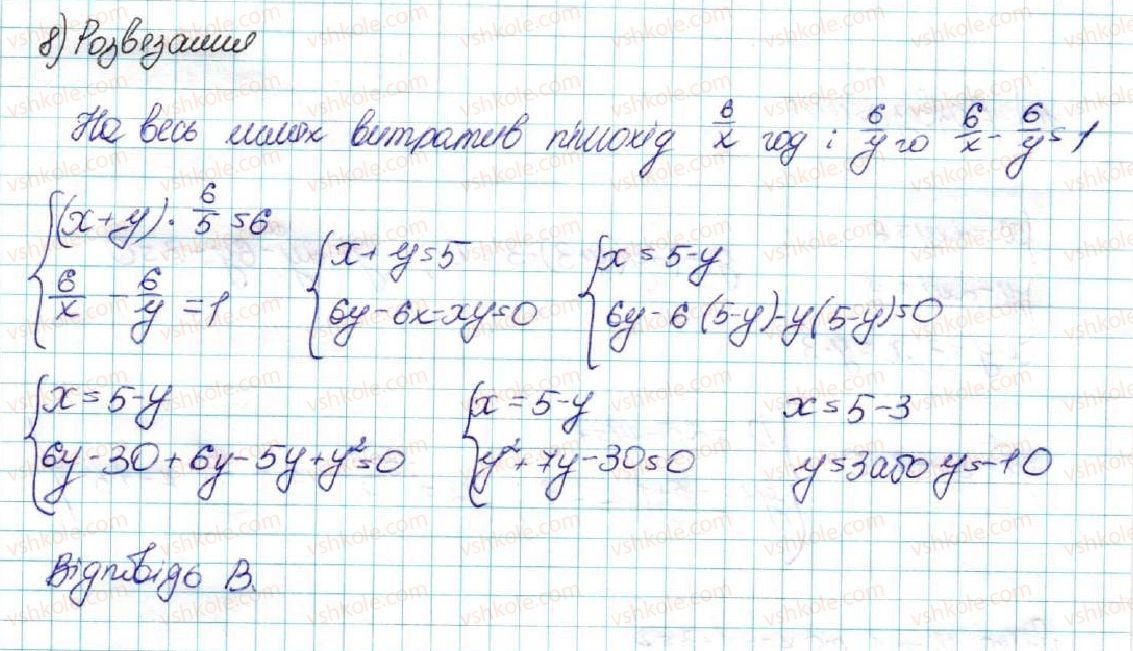 8) Розвязання
На весь шлях витратив пішохід 6/x год і 6/y го 6/x - 6/y = 1
{(x+y)·6/5=6
6/x - 6/y = 1
{x+y=5
6y-6x-xy=0
{x=5-y
6y-6(5-y)-y(5-y)=0
{x=5-y
6y-30+6y-5y+y²=0
{x=5-y
y²+7y-30=0
x=5-3
y=3 або y=-10
Відповідь В.